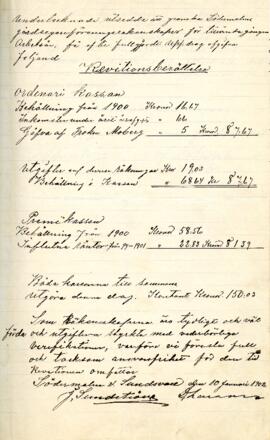 Undertecknade utsedde att granska Södermalms
gårdsegareförenings räkenskaper för
Arbetsår, få efter fullgjordt uppdrag afgifva
följand
Revitionsberättelse
Ordenari Kassan
Behållning från 1900 Kronor 16.67
Inkomster under året " 66
Gåfva af Fröken Moberg " 5 Kronor 87.67
Utgifter enl denna räkningar Kr 19.03
Behållning i Kassan " 68.64 Kr 87.67
Premi Kassan
Behållning från 1900 Kronor 58.56
Influtna räntor för 99-1901 " 22.83 Kronor 81.39
Båda kassorna till sammans
utgöra denna dag. Kontant Kronor 150.03
Som Räkenskaperna äro tydligt och väl
förda och utgifterna styrkta med vederbörliga
verifikationer, varföre vi föreslå full
och tacksam ansvarsfrihet för den tid
Revitionen omfattar
Södermalm & Sundsvall den 10 Januari 1902
J. Sundström